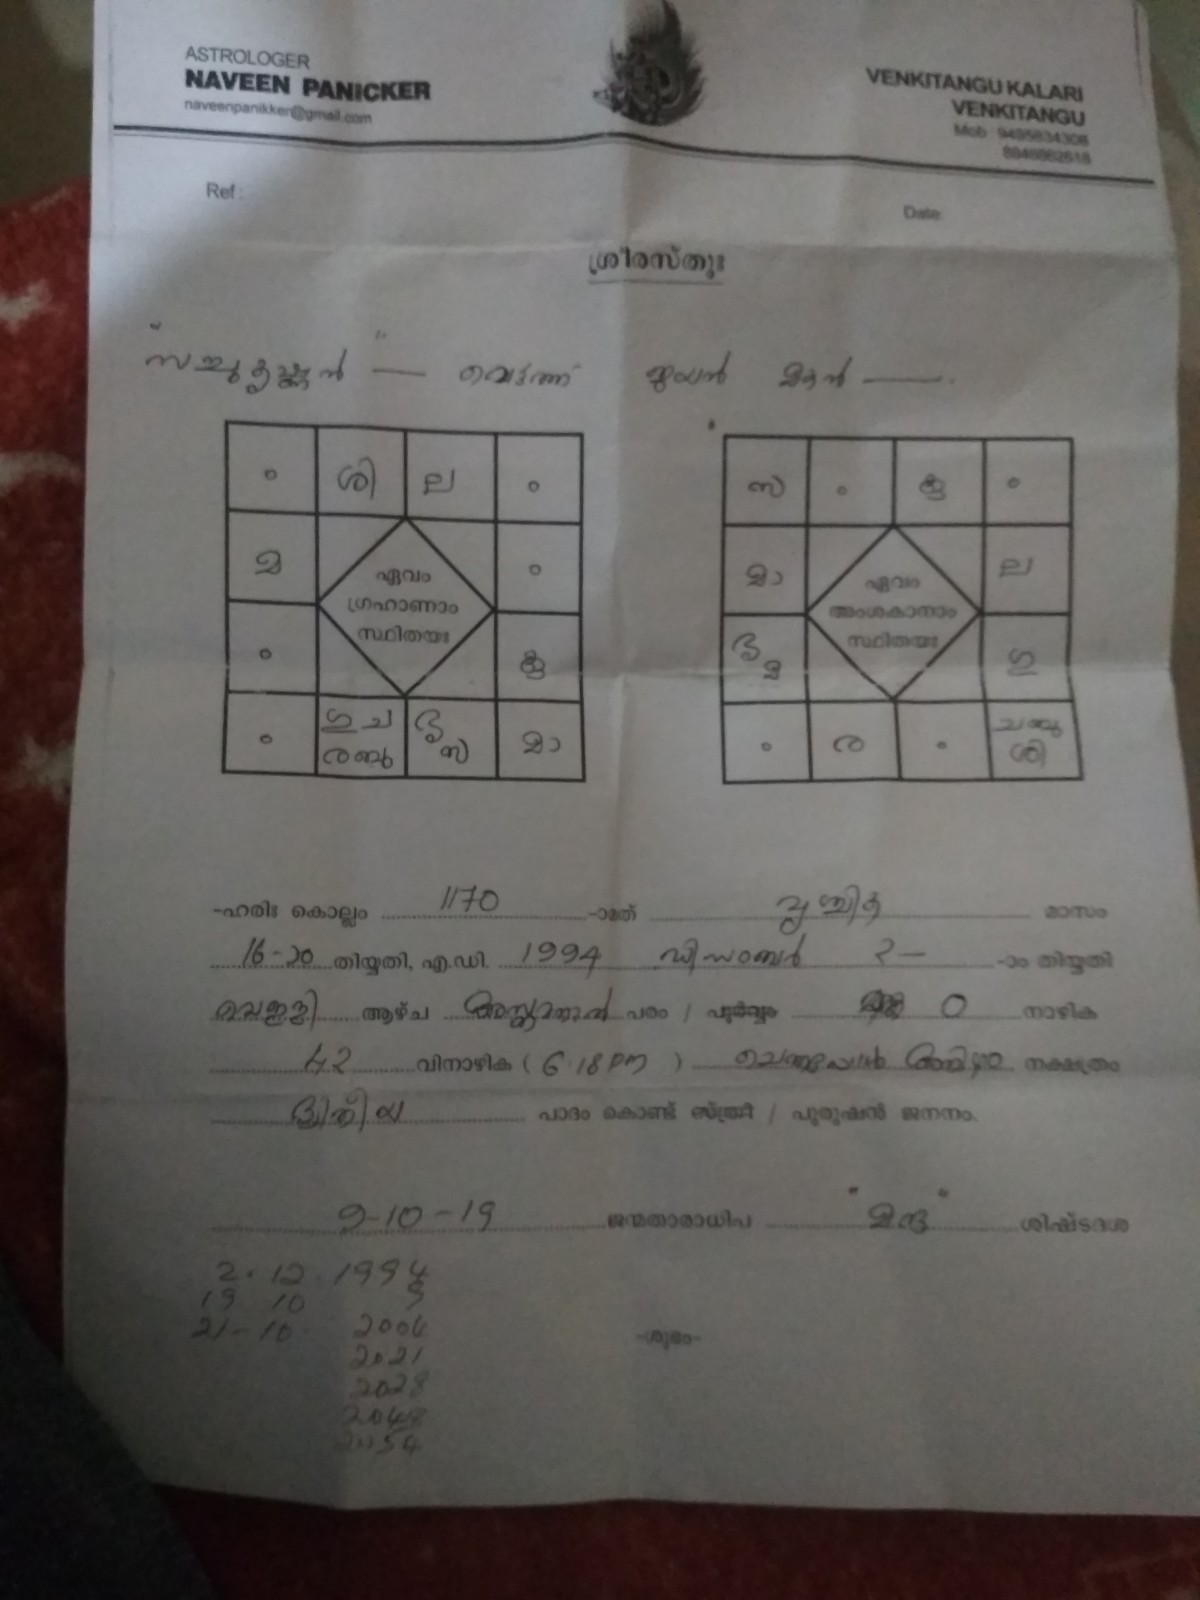 ASTROLOGER
NAVEEN PANICKER
naveenpanikker@gmail.com
VENKITANGU KALARI
VENKITANGU
Mob : 9495634308
Ref :
Date:
ശ്രീരസ്തുഃ
സച്ചുകൃഷ്ണൻ — ജയൻ മകൻ —
° ശി ല °
മ °
° കു
° ഗു ച ര ബു ശു സ മാ
ഏവം
ഗ്രഹാണാം
സ്ഥിതയഃ
സ ° കു °
മാ ല
ശു മ ഗു
° ര ° ച ബു ശി
ഏവം
അംശകാനാം
സ്ഥിതയഃ
-ഹരിഃ കൊല്ലം 1170 -ാമത് വൃശ്ചിക മാസം
16-20 തിയ്യതി, എ.ഡി. 1994 ഡിസംബർ 2 — -ാം തിയ്യതി
വെള്ളി ആഴ്ച അസ്തമനാൽ പരം / പൂർവ്വം 0 നാഴിക
42 വിനാഴിക ( 6.18 PM ) അനിഴം നക്ഷത്രം
ദ്വിതീയ പാദം കൊണ്ട് സ്ത്രീ / പുരുഷൻ ജനനം.
9-10-19 ജന്മതാരാധിപ "മന്ദ" ശിഷ്ടദശ
2. 12. 1994
19 10 9
21 - 10 2004
2021
2028
2048
2054
-ശുഭം-